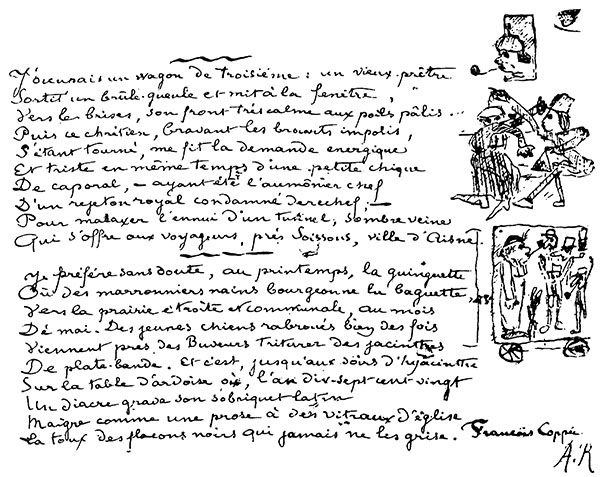 J'occupais un wagon de troisième : un vieux prêtre
Sortit un brûle-gueule et mit à la fenêtre,
Vers les brises, son front très calme aux poils pâlis...
Puis ce chrétien, bravant les brocarts impolis,
S'étant tourné, me fit la demande énergique
Et triste en même temps d'une petite chique
De caporal, — ayant été l'aumônier chef
D'un rejeton royal condamné derechef ; —
Pour malaxer l'ennui d'un tunnel, sombre veine
Qui s'offre aux voyageurs, près Soissons, ville d'Aisne.
Je préfère sans doute, au printemps, la guinguette
Où des marronniers nains bourgeonne la baguette,
Vers la prairie étroite et communale, au mois
De mai. Des jeunes chiens rabroués bien des fois
Viennent près des Buveurs triturer des jacinthes
De plate-bande. Et c'est, jusqu'aux soirs d'hyacinthe
Sur la table d'ardoise où, l'an dix-sept cent vingt
Un diacre grava son sobriquet latin
Maigre comme une prose à des vitraux d'église
La toux des flacons noirs qui jamais ne les grise. François Coppée.
A. R